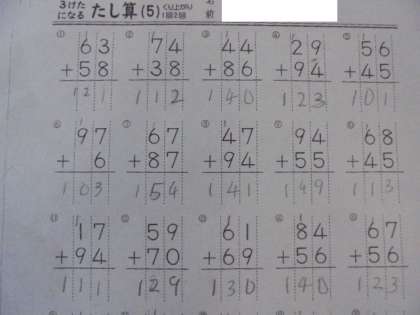 3けた
になる たし算(5) くり上がり 1回2回 名前
① ② ③ ④ ⑤
63 74 44 29 56
+58 +38 +86 +94 +45
121 112 140 123 101
⑥ ⑦ ⑧ ⑨ ⑩
97 67 47 94 68
+6 +87 +94 +55 +45
103 154 141 149 113
17 59 61 84 67
+94 +70 +69 +56 +56
111 129 130 140 123